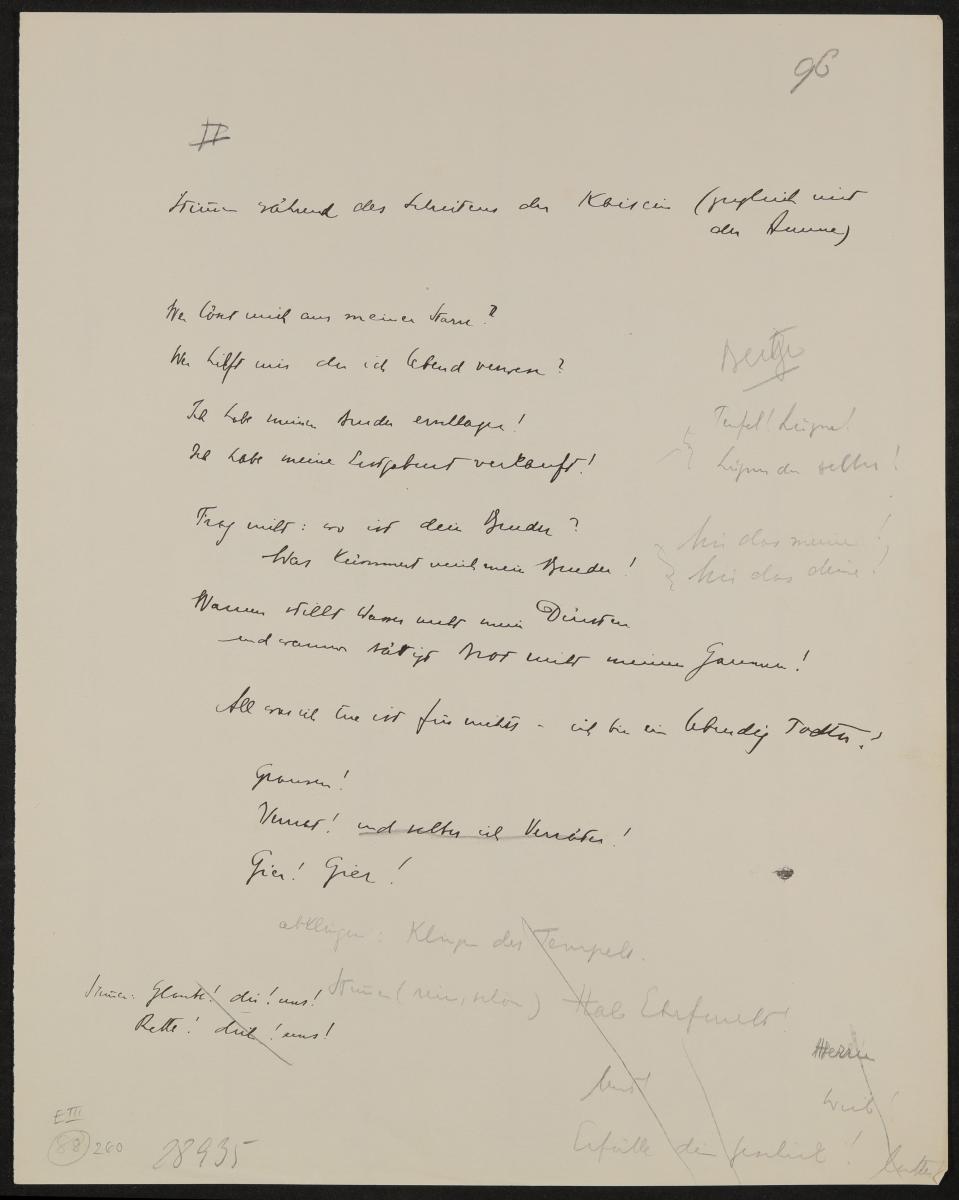 96
II
Stimmen während des Schreitens der Kaiserin (zugleich mit
der Amme)
Wer löst mich aus meiner Starre?
Wer hilft mir der ich lebend verwese?
Ich habe meinen Bruder erschlagen!
Ich habe meine Erstgeburt verkauft!
Teufel! Lügner!
Lügner du selber!
Frag nicht: wo ist dein Bruder?
Was kümmert mich mein Bruder!
Mir das meine!
Mir das deine!
Warum stillt Wasser nicht mein Dürsten
und warum sättigt Brot nicht meinen Gaumen!
All was ich tue ist für nichts – ich bin ein lebendig Todter!
Grausen!
Verrat! und selber ich Verräter!
Gier! Gier!
abklingen: Klingen des Tempels.
Stimmen: Glaube! die! uns!
Rette! dich! uns!
Stimmen (rein, schön) Hab Ehrfurcht!
Herrin
Mut!
Weib!
Erfülle dein Geschick!
E III
88 260
28935